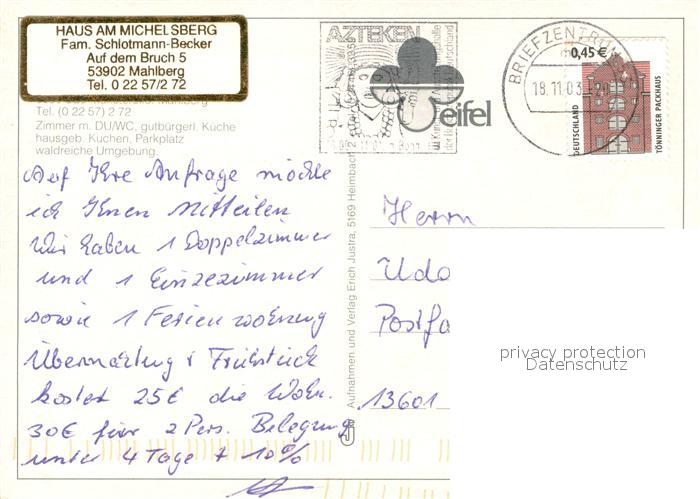 HAUS AM MICHELSBERG
Fam. Schlotmann-Becker
Auf dem Bruch 5
53902 Mahlberg
Tel. 0 22 57/2 72
Tel. (0 22 57) 2 72
Zimmer m. DU/WC, gutbürgerl. Küche
hausgeb. Kuchen, Parkplatz
waldreiche Umgebung.
Auf Ihre Anfrage möchte
ich Ihnen mitteilen
Wir haben 1 Doppelzimmer
und 1 Einzezimmer
sowie 1 Ferienwohnung
Übernachtung + Frühstück
kostet 25€ die Wohn.
30€ für 2 Pers. Belegung
unter 4 Tage + 10%
AZTEKEN
eifel
BRIEFZENTRUM
18.11.03
0,45 €
DEUTSCHLAND
TÖNNINGER PACKHAUS
Aufnahmen und Verlag Erich Justra, 5169 Heimbach
Herrn
Udo
Postfa
13601
privacy protection
Datenschutz